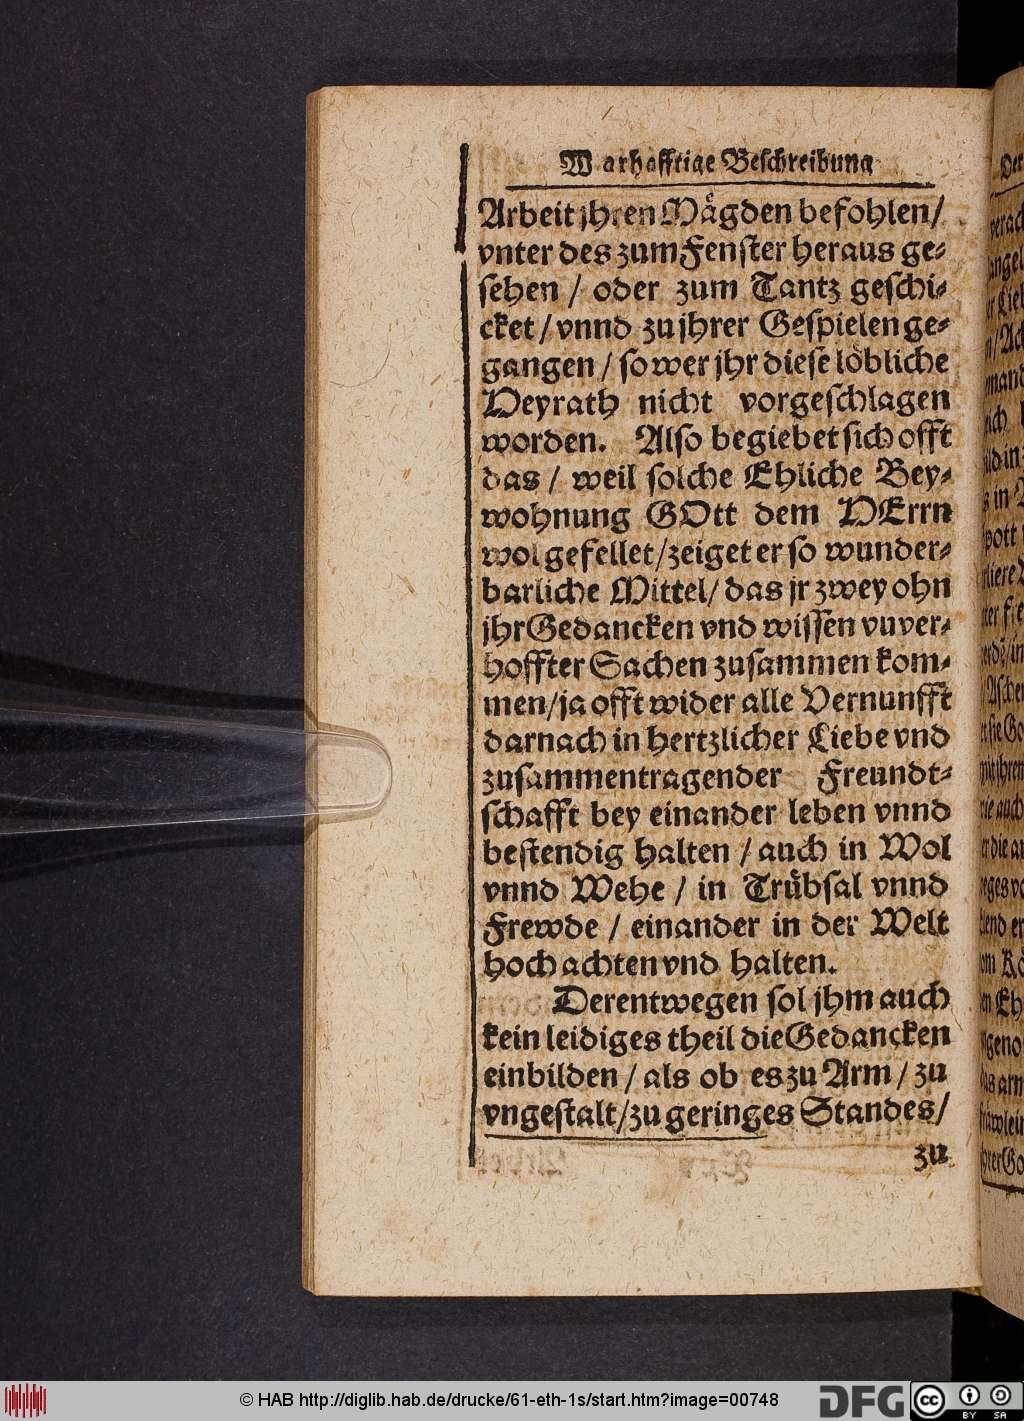 Warhafftige Beschreibung
Arbeit jhren Mägden befohlen/
vnter des zum Fenster heraus ge-
sehen / oder zum Tantz geschi-
cket / vnnd zu jhrer Gespielen ge-
gangen / so wer jhr diese löbliche
Heyrath nicht vorgeschlagen
worden. Also begiebet sich offt
das / weil solche Ehliche Bey-
wohnung GOtt dem HErrn
wol gefellet/zeiget er so wunder-
barliche Mittel/ das jr zwey ohn
jhr Gedancken vnd wissen vuver-
hoffter Sachen zusammen kom-
men/ja offt wider alle Vernunfft
darnach in hertzlicher Liebe vnd
zusammentragender Freundt-
schafft bey einander leben vnnd
bestendig halten / auch in Wol
vnnd Wehe / in Trübsal vnnd
Frewde / einander in der Welt
hoch achten vnd halten.
Derentwegen sol jhm auch
kein leidiges theil die Gedancken
einbilden / als ob es zu Arm / zu
vngestalt/zu geringes Standes/
zu
© HAB http://diglib.hab.de/drucke/61-eth-1s/start.htm?image=00748
DFG
cc
BY SA